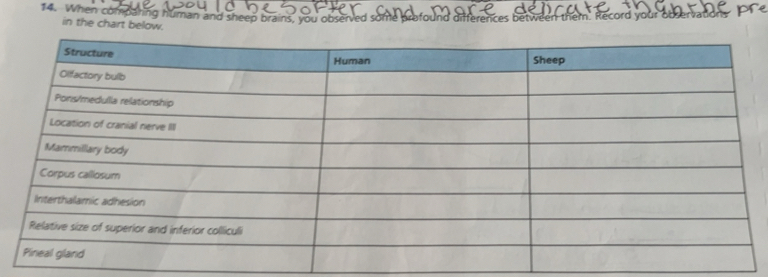 sue would be softer and more delicate than the pre
14. When comparing human and sheep brains, you observed some profound differences between them. Record your observations
in the chart below.
Structure Human Sheep
Olfactory bulb
Pons/medulla relationship
Location of cranial nerve III
Mammillary body
Corpus callosum
Interthalamic adhesion
Relative size of superior and inferior colliculi
Pineal gland